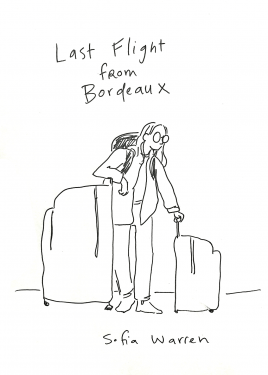 Last Flight
from
Bordeaux
Sofia Warren